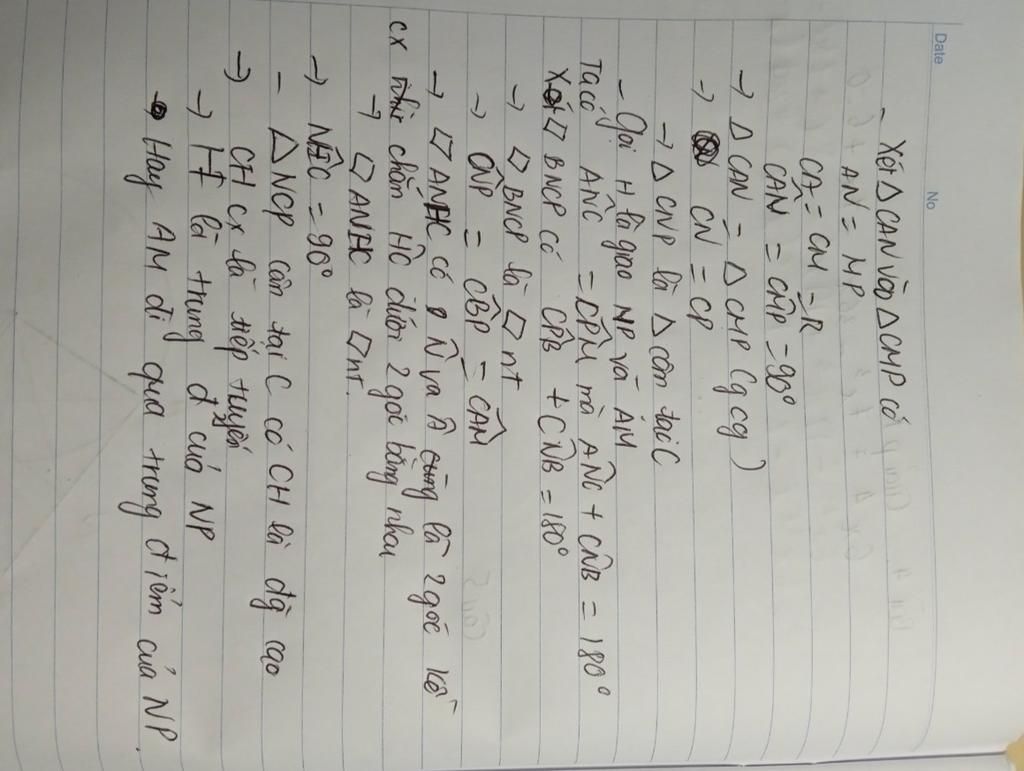 Date No
- Xét △ CAN và △ CMP có
AN = MP
CA = CM = R
CÂN = CM̂P = 90°
→ △ CAN = △ CMP (g cg)
→ CN = CP
→ △ CNP là △ cân tại C
- Gọi H là giao NP và AM
Ta có AN̂C = CP̂M mà AN̂C + CN̂B = 180°
Xét ▱ BNCP có CP̂B + CN̂B = 180°
→ ▱ BNCP là ▱ nt
→ CN̂P = CB̂P = CÂM
→ ▱ ANHC có N̂ và Â cùng là 2 góc kề
cx nhìn chắn HC dưới 2 góc bằng nhau
→ ▱ ANHC là ▱ nt.
→ NĤC = 90°
- △ NCP cân tại C có CH là đg cao
→ CH cx là tiếp tuyến
→ H là trung đ của NP
Hay AM đi qua trung điểm của NP.